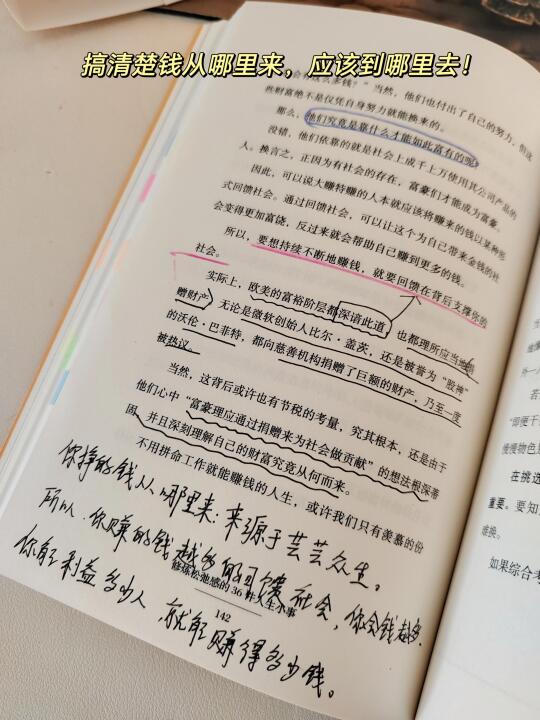 搞清楚钱从哪里来，应该到哪里去！
会有这么多钱？”当然，他们也付出了自己的努力，但这
些财富绝不是仅凭自身努力就能换来的。
那么，他们究竟是靠什么才能如此富有的呢
没错，他们依靠的就是社会上成千上万使用其公司产品的
人。换言之，正因为有社会的存在，富豪们才能成为富豪。
因此，可以说大赚特赚的人本就应该将赚来的钱以某种形
式回馈社会。通过回馈社会，可以让这个为自己带来金钱的社
会变得更加富饶，反过来就会帮助自己赚到更多的钱。
所以，要想持续不断地赚钱，就要回馈在背后支撑你的
社会。
实际上，欧美的富裕阶层都深谙此道，也都理所应当地捐
赠财产。无论是微软创始人比尔·盖茨，还是被誉为“股神”
的沃伦·巴菲特，都向慈善机构捐赠了巨额的财产，乃至一度
被热议。
当然，这背后或许也有节税的考量，究其根本，还是由于
他们心中“富豪理应通过捐赠来为社会做贡献”的想法根深蒂
固，并且深刻理解自己的财富究竟从何而来。
不用拼命工作就能赚钱的人生，或许我们只有羡慕的份
你挣的钱从哪里来：来源于芸芸众生。
所以，你赚的钱越多的回馈社会，你会钱越多.
你能利益多少人，就能赚得多少钱。
修炼松弛感的36件人生小事
142
若
“即便千
慢慢物色
在挑选
重要。要知
难换。
如果综合考